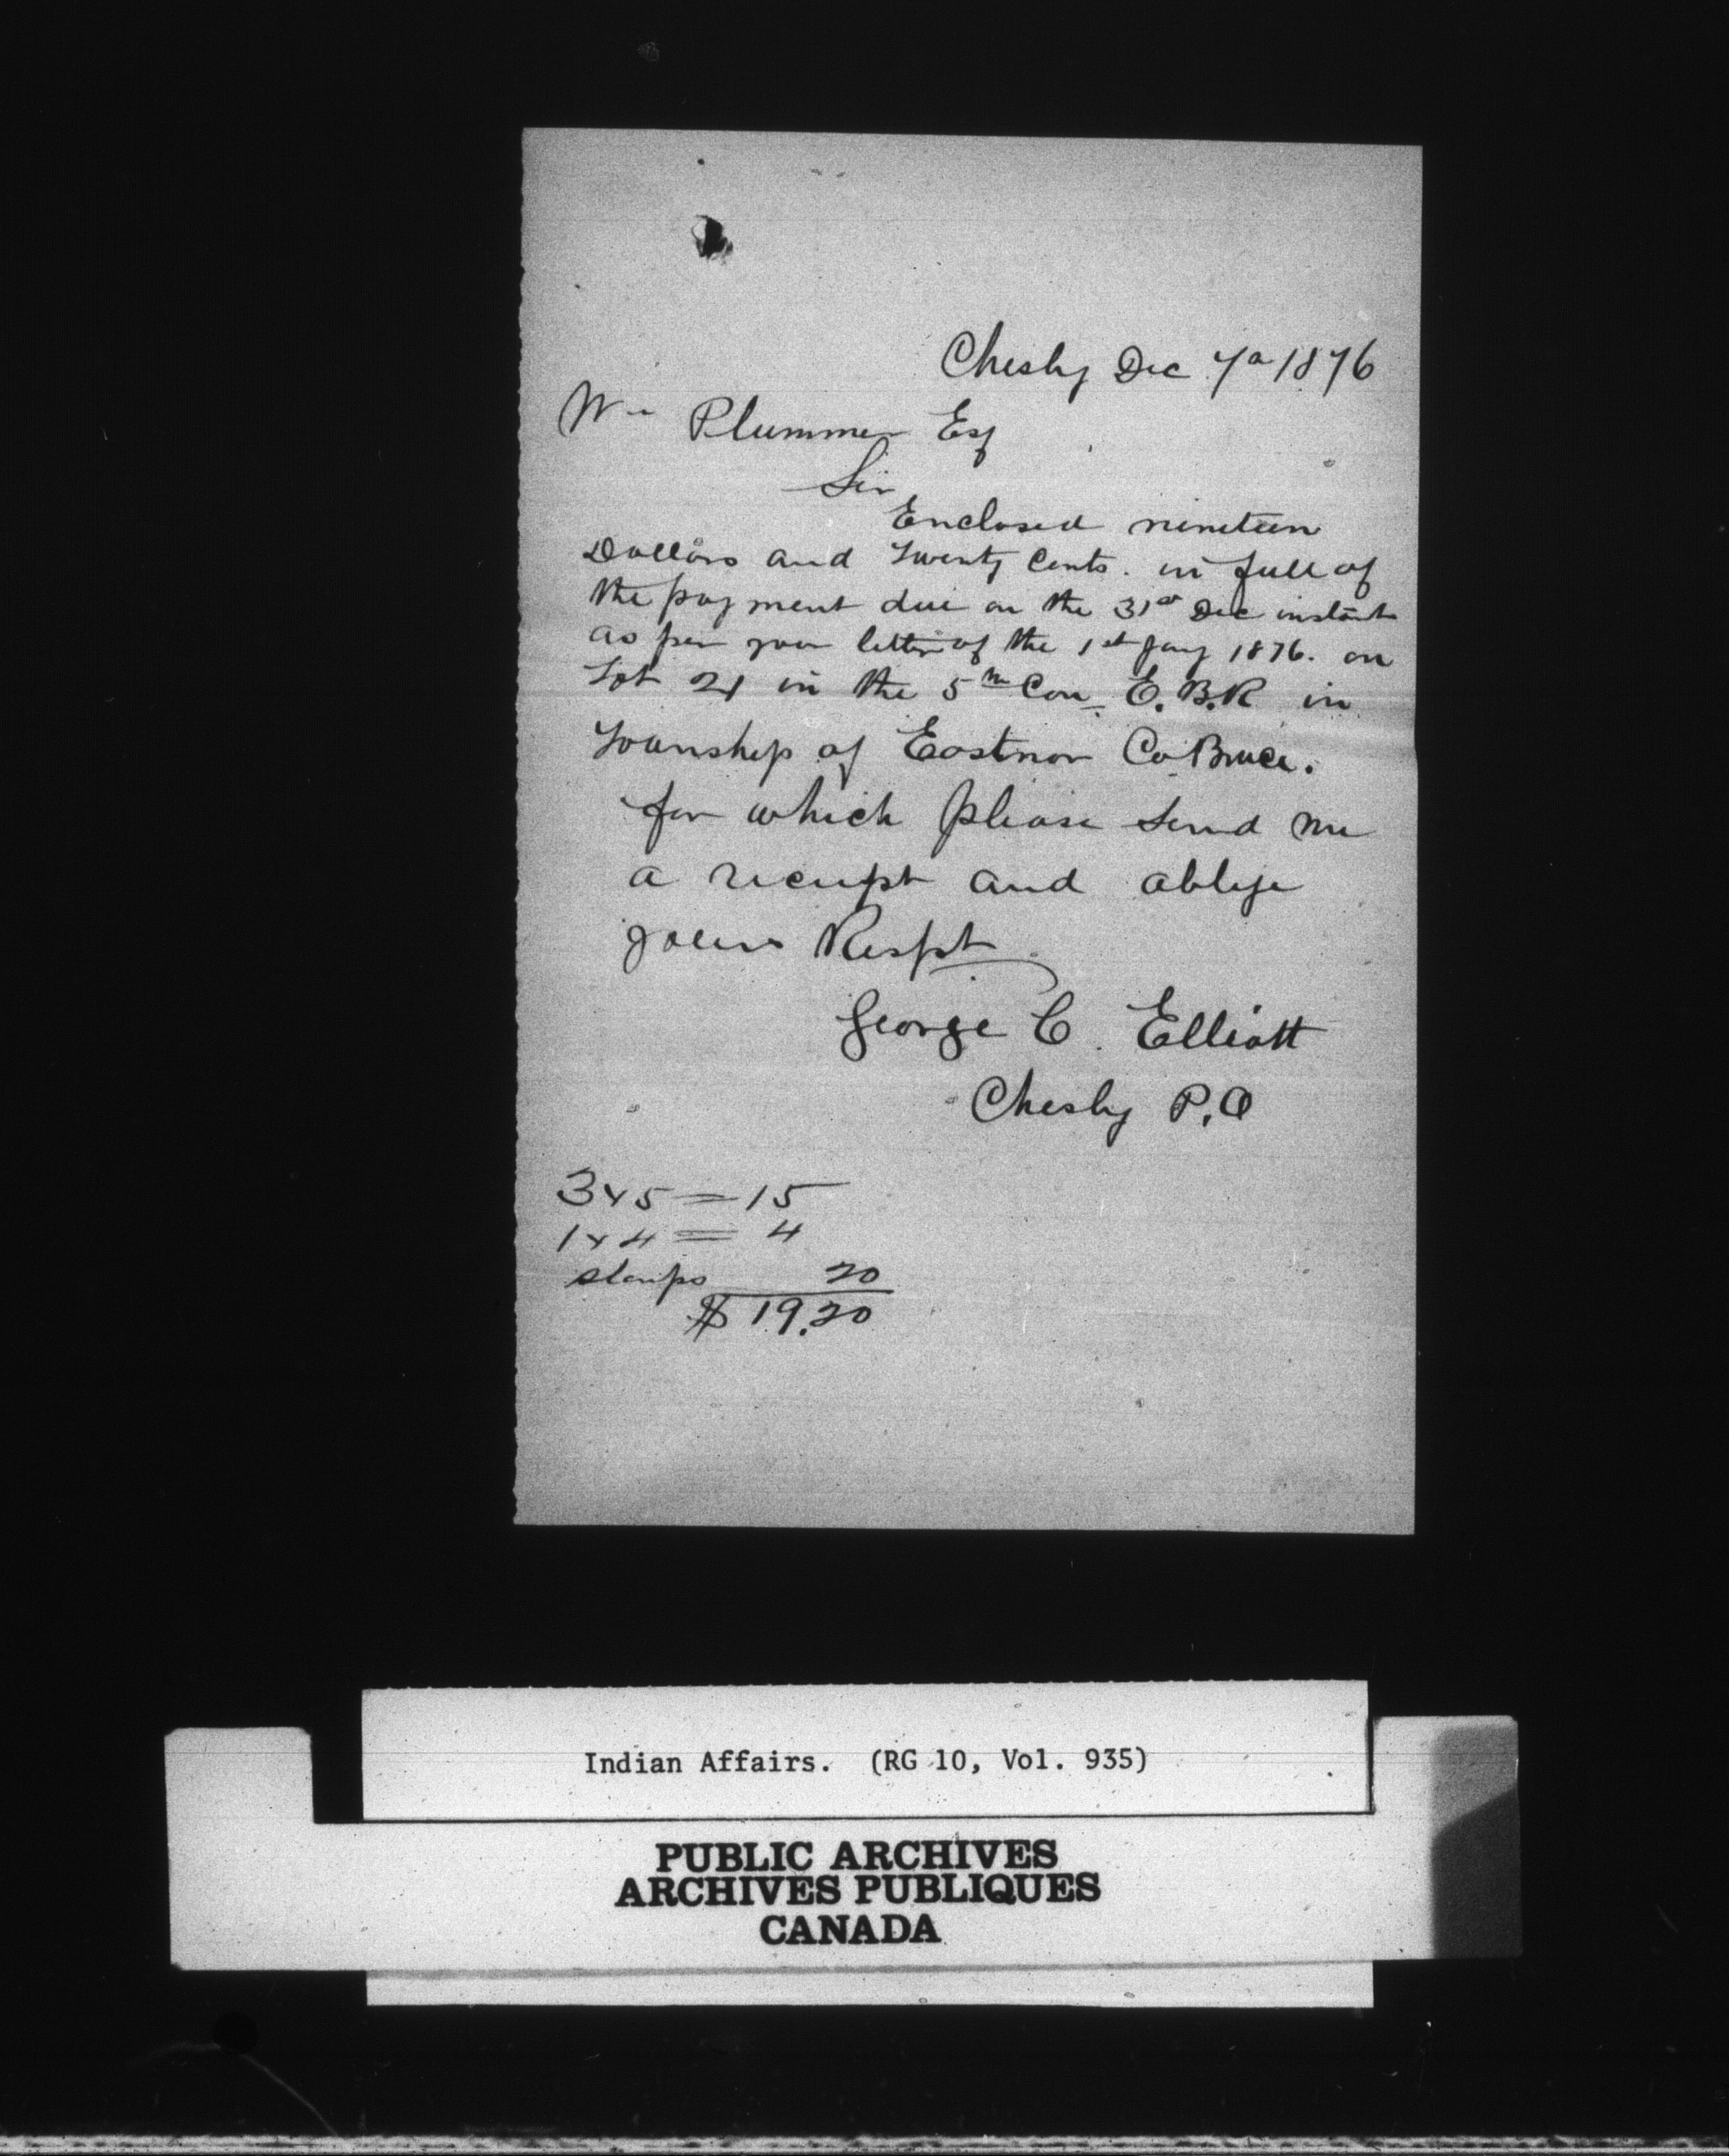 Chesly Dec 7th 1876
Wm Plummer Esq
Sir
Enclosed nineteen
Dollars and Twenty Cents. in full of
the payment due on the 31st Dec instant
as per your letter of the 1st Jany 1876. on
Lot 21 in the 5th Con E.B.R in
Township of Eastnor Co Bruce.
for which please send me
a receipt and oblige
yours Respt
George C. Elliott
Chesly P.O
3x5=15
1x4=4
stamps 20
$19.20
Indian Affairs. (RG 10, Vol. 935)
PUBLIC ARCHIVES
ARCHIVES PUBLIQUES
CANADA